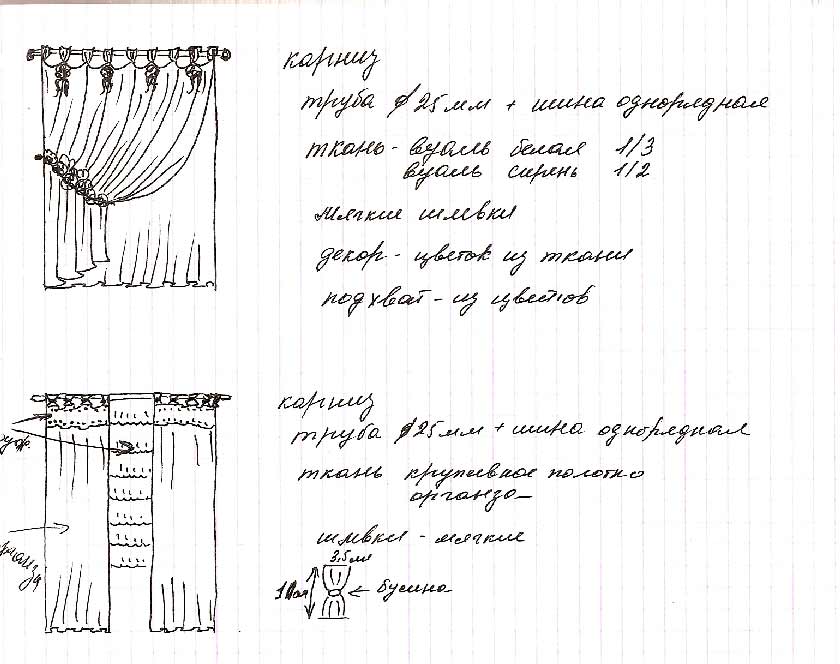 карниз
труба ∅ 25 мм + шина однорядная
ткань - вуаль белая 1/3
вуаль сирень 1/2
мягкие шлевки
декор - цветок из ткани
подхват - из цветов
карниз
труба ∅25 мм + шина однорядная
ткань кружевное полотно
органза
шлевки - мягкие
3,5 см
← бусина